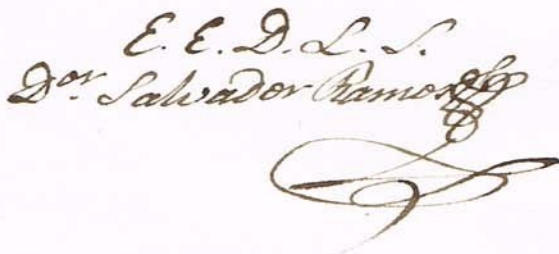 E. E. D. L. S.
Dor. Salvador Ramos